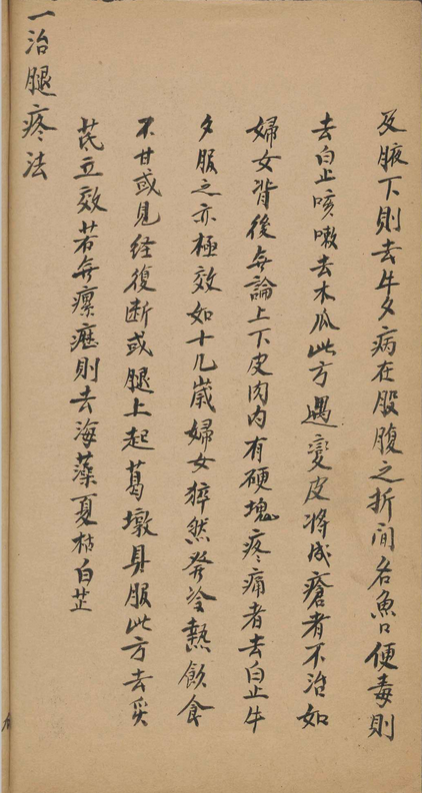 及腋下則去牛夕病在股腹之折间名魚口便毒則
去白止咳嗽去木瓜此方遇變皮將成瘡者不治如
婦女背後無論上下皮肉内有硬塊疼痛者去白止牛
夕服之亦極效如十几歳婦女猝然發冷熱飲食
不甘或見经復断或腿上起葛墩具服此方去炙
芪立效若無瘰癧則去海藻夏枯白芷
一治腿疼法